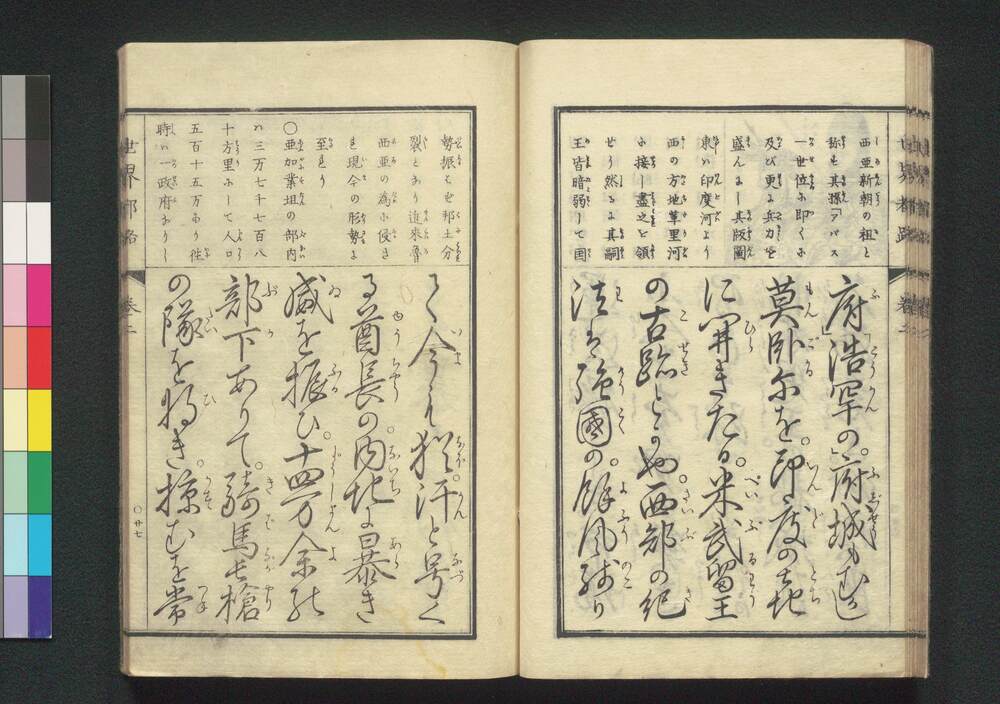 西亜新朝の祖と
称も其孫「アバス
一世位に即くに
及び更に兵力を
盛んにし其版圖
東ハ印度河より
西の方地革里河
に接し盡之を領
せり然るに其嗣
王皆暗弱して国
府」浩罕の府城もむか
莫臥尓を。印度の土地
に開きたる。米武留王
の古跡とかや西部の紀
法は強國の。餘風残り
勢振ハを邦土分
裂となり近来魯
西亜の為に侵さ
れ現今の形勢に
至れり
〇亜加業坦の部内
ハ三万七千七百八
十方里にして人口
五百十五万あり往
時ハ一政府ありし
て今も猶。汗と号く
る酋長の。内地に暴き
威を振ひ。十四万余の
部下ありて。騎馬長槍
の隊を将き。掠むを常
世界都路
巻二
〇廿七